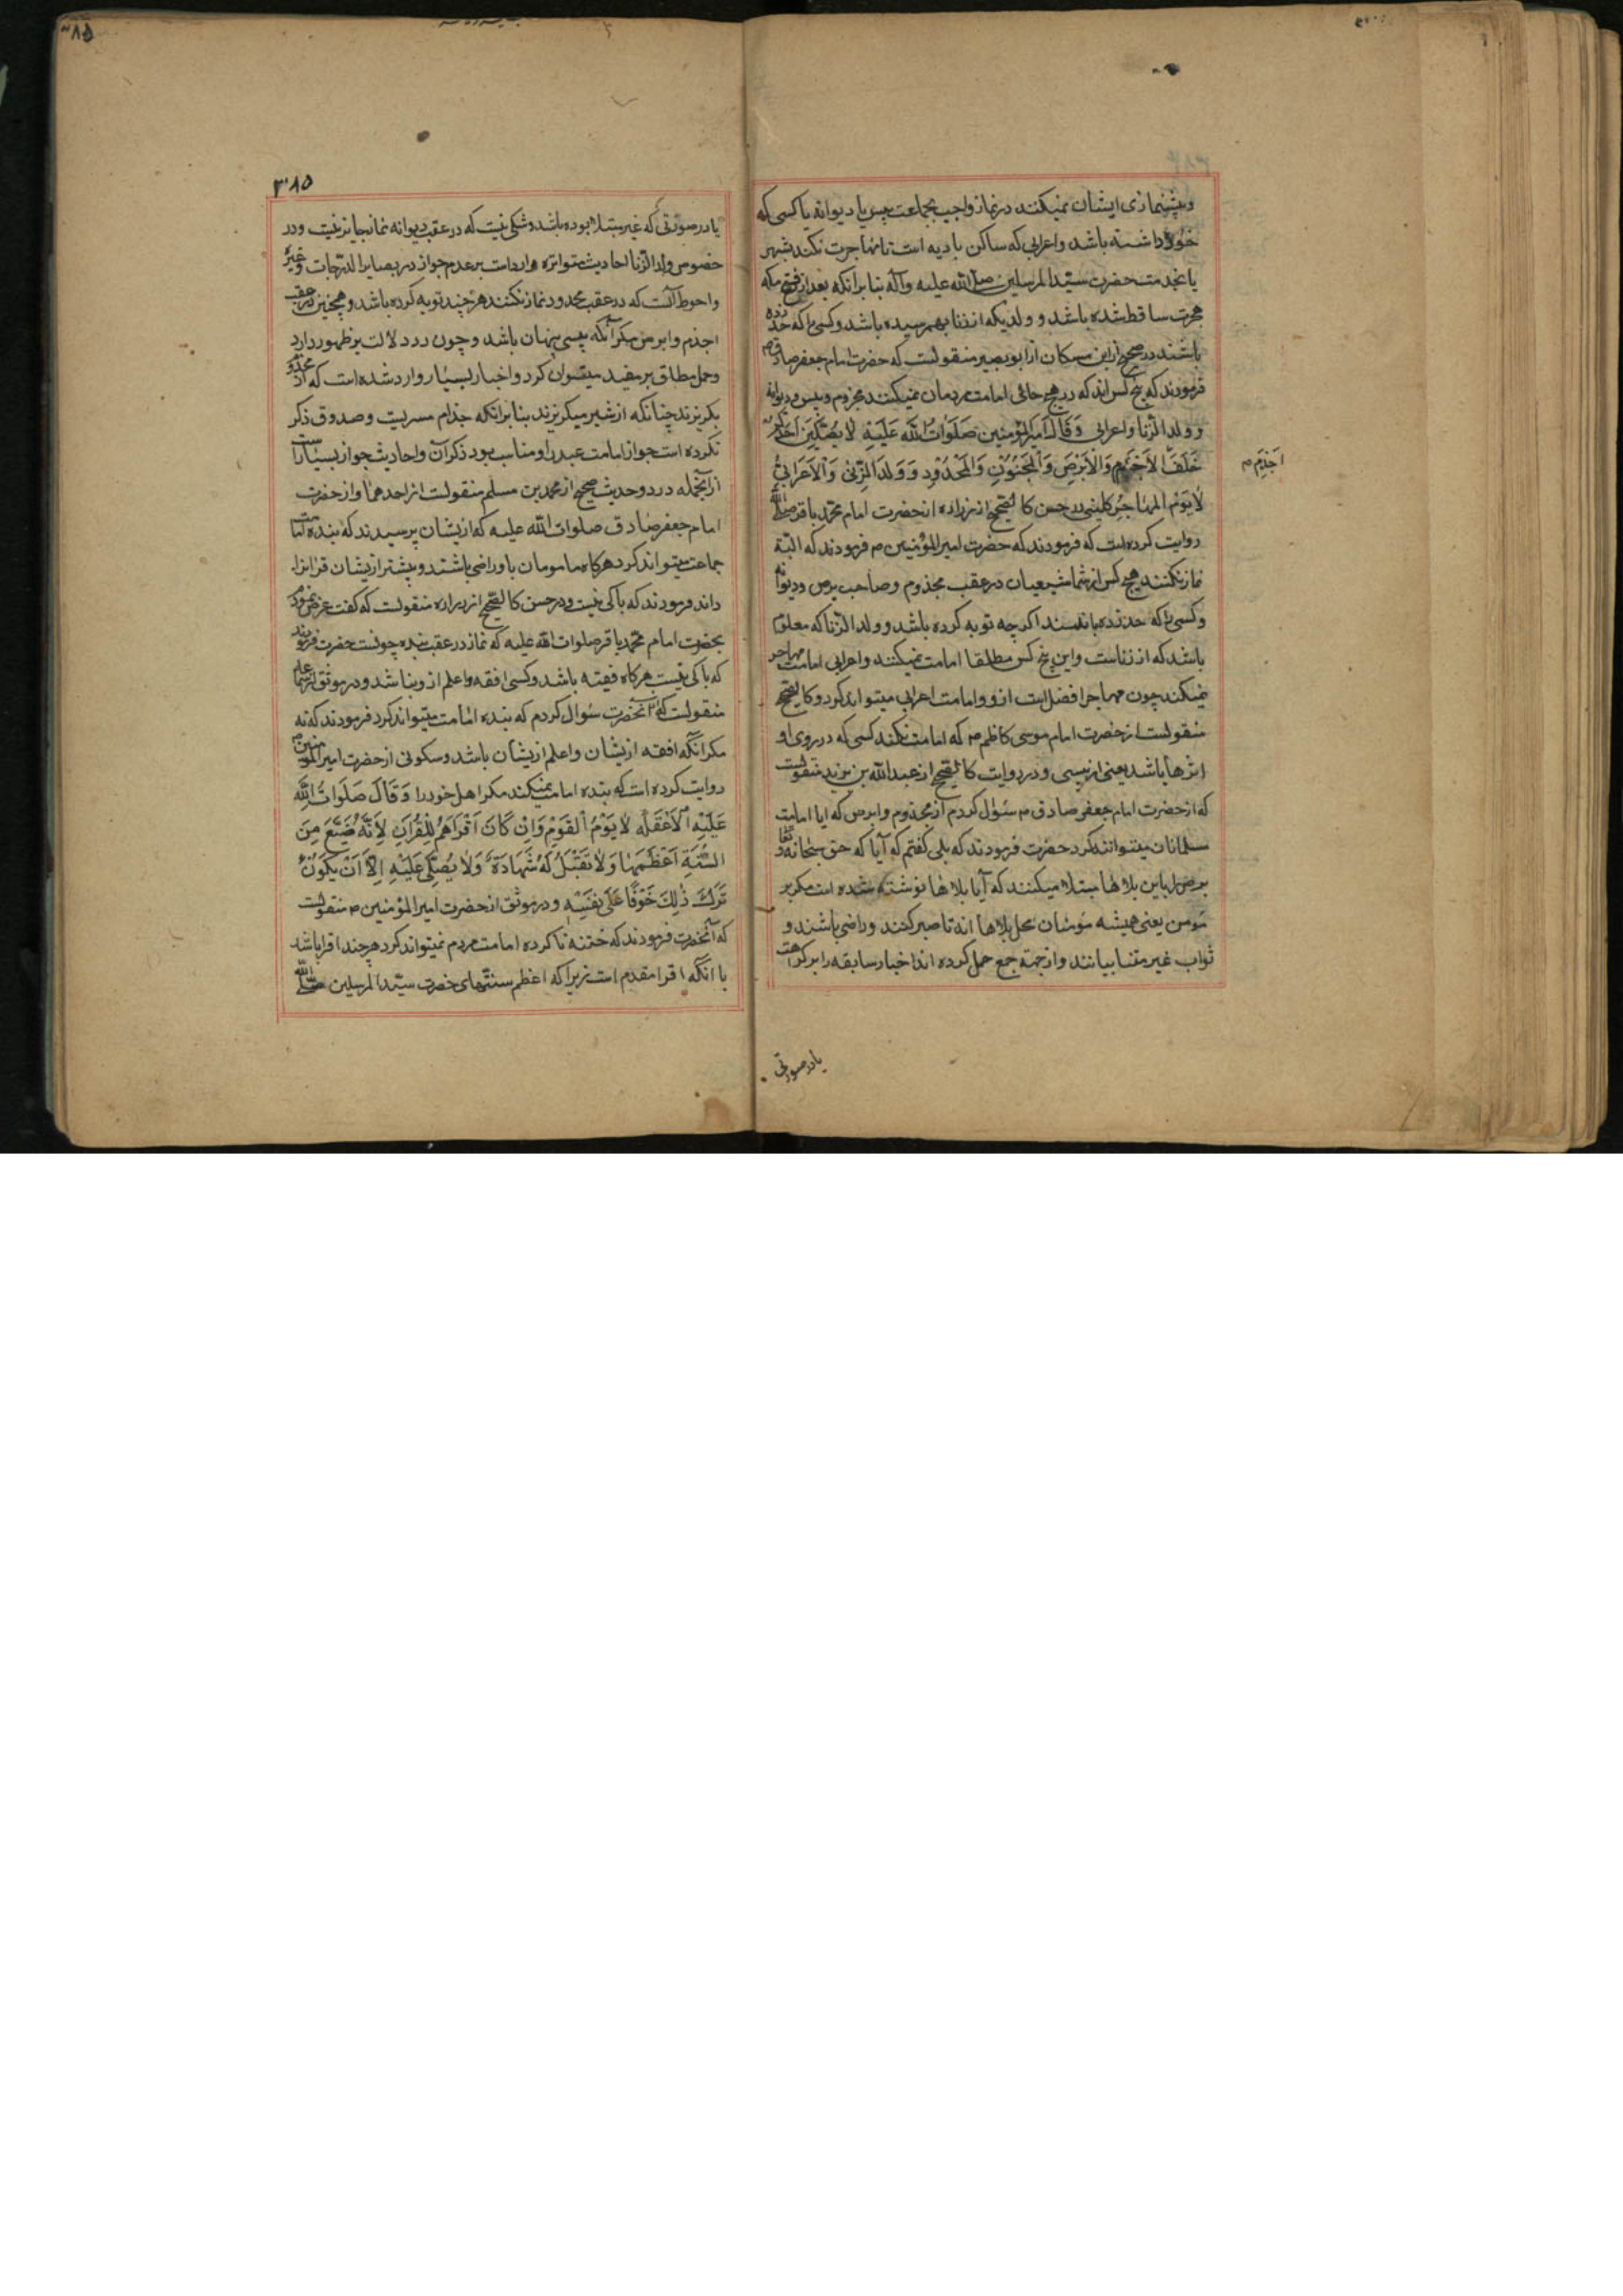 و پیشنمازی ایشان نمیکنند در نماز واجب بجماعت پیس یا دیوانه یا کسی که
داشته باشد و اعرابی که ساکن بادیه است تا مهاجرت نکند بشهر
یا بخدمت حضرت سید المرسلین صلی الله علیه و آله بنا بر آنکه بعد از فتح مکه
هجرت ساقط شده باشد و ولدی که از زنا بهم رسیده باشد و کسی را که حد زده
باشند در صحیح از ابن مسکان از ابو بصیر منقولست که حضرت امام جعفر صادق
فرمودند که پنج کس اند که در هیچ حالی امامت مردمان نمیکنند مجزوم و پیس و دیوانه
و ولد الزنا و اعرابی وَقَالَ اَمیرُ المؤمِنینَ صَلَوَاتُ اللهِ عَلَیْهِ لَا یُصَلِّیَنَّ اَحَدُکُمْ
خَلْفَ الاَجْذَمِ وَالْاَبْرَصِ وَالْمَجْنُوْنِ وَالمَحْدُوْدِ وَوَلَدِ الزِّنٰی وَالْاَعْرَابِیُّ
اَجذم م
لَا یَؤُمّ المهَاجِر کلینی در حسن کالصحیح از زراره از حضرت امام محمد باقر صلی الله
روایت کرده است که فرمودند که حضرت امیر المؤمنین م فرمودند که البته
نماز نکنند هیچ کس از شما شیعیان در عقب مجذوم و صاحب برص و دیوانه
و کسی را که حد زده باشند اگر چه توبه کرده باشد و ولد الزنا که معلوم
باشد که از زناست و این پنج کس مطلقا امامت نمیکنند و اعرابی امامت مهاجر
نمیکند چون مهاجر افضل است ازو و امامت اعرابی میتواند کرد و کالصحیح
منقولست از حضرت امام موسی کاظم م که امامت نکند کسی که در روی او
اثرها باشد یعنی از پیسی و در روایت کالصحیح از عبد الله بن یزید منقولست
که از حضرت امام جعفر صادق م سؤال کردم از مجذوم و ابرص که ایا امامت
مسلمانان میتوانند کرد حضرت فرمودند که بلی گفتم که آیا که حق سبحانه و تعالی
برص را باین بلاها مبتلا میکنند که آیا بلاها نوشته شده است مگر بر
مؤمن یعنی همیشه مؤمنان محل بلاها اند تا صبر کنند و راضی باشند و
ثواب غیر متناهی یابند و ازجهته جمع حمل کرده اند اخبار سابقه را بر کراهت
یا در صورتی
۳۸۵
یا در صورتی که غیر مبتلا بوده باشد و شکی نیست که در عقب دیوانه نماز جایز نیست و در
خصوص ولد الزنا احادیث متواتره وارد است بر عدم جواز در بصایر الدرجات و غیره
و احوط آنست که در عقب محدود نماز نکنند هر چند توبه کرده باشد و همچنین در عقب
اجذم و ابرص مگر آنکه پیسی پنهان باشد و چون دلالت بر ظهور دارد
و حمل مطلق بر مقید میتوان کرد و اخبار بسیار وارد شده است که از مجذوم
بگریزند چنانکه از شیر میگریزند بنا بر آنکه جذام مسریست و صدوق ذکر
نکرده است جواز امامت عبد را و مناسب بود ذکر آن و احادیث جواز بسیار است
از آنجمله در دو حدیث صحیح از محمد بن مسلم منقولست از احدهما و از حضرت
امام جعفر صادق صلوات الله علیه که ازیشان پرسیدند که بنده امامت
جماعت میتواند کرد هرگاه مامومان باو راضی باشند و بیشتر ازیشان قرآن را
داند فرمودند که باکی نیست و در حسن کالصحیح از زراره منقولست که گفت عرض نمودم
بحضرت امام محمد باقر صلوات الله علیه که نماز در عقب بنده چونست حضرت فرمودند
که باکی نیست هرگاه فقیه باشد و کسی افقه و اعلم ازو نباشد و در موثق از سماعه
منقولست که از آنحضرت سؤال کردم که بنده امامت میتواند کرد فرمودند که نه
مگر آنکه افقه ازیشان و اعلم ازیشان باشد و سکونی از حضرت امیر المؤمنین م
روایت کرده است که بنده امامت نمیکند مگر اهل خود را وَقَالَ صَلَوَاتُ اللهِ
عَلَیْهِ اَلْاَغْلَفُ لَا یَؤُمُّ الْقَوْمَ وَاِنْ کَانَ اَقْرَاَهُمْ لِلْقُرْاٰنِ لِاَنَّهُ ضَیَّعَ مِنَ
السُّنَّةِ اَعْظَمَهَا وَلَا تُقْبَلُ لَهُ شَهَادَةٌ وَلَا یُصَلّٰی عَلَیْهِ اِلَّا اَنْ یَکُوْنَ
تَرَکَ ذٰلِکَ خَوْفًا عَلٰی نَفْسِهِ و در موثق از حضرت امیر المؤمنین م منقولست
که آنحضرت فرمودند که ختنه ناکرده امامت مردم نمیتواند کرد هر چند اقرا باشد
با آنکه اقرا مقدم است زیرا که اعظم سنتهای حضرت سید المرسلین صلی الله